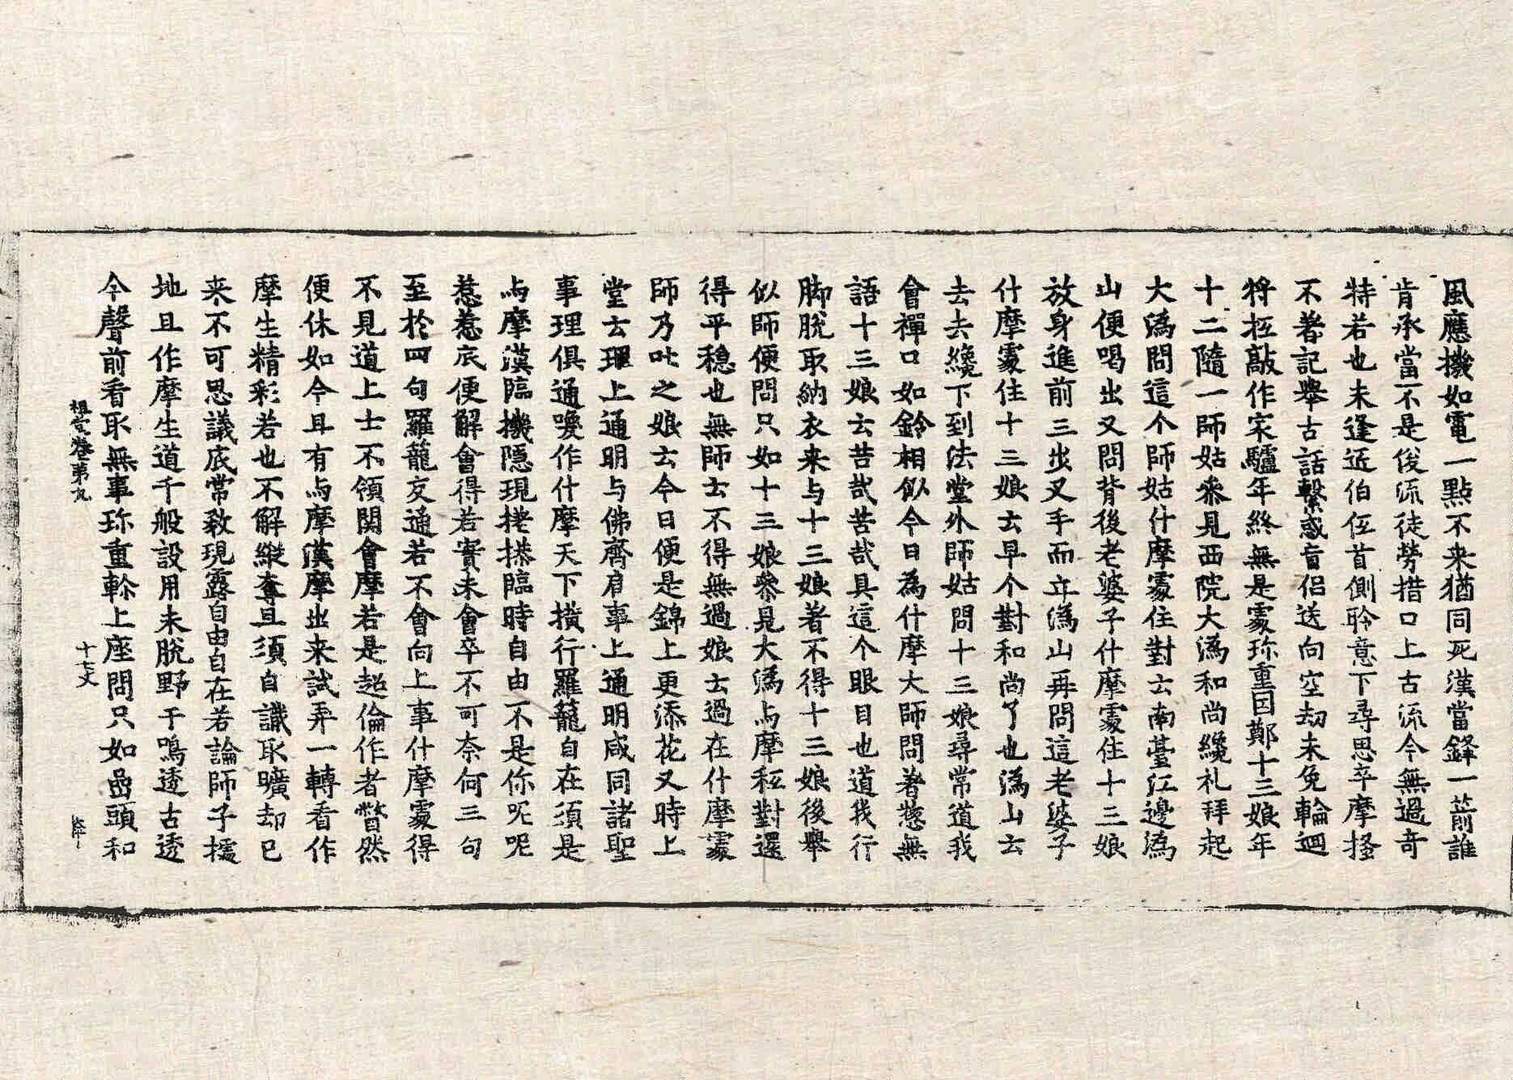 風應機如電一點不来猶同死漢當鋒一箭誰
肯承當不是俊流徒勞措口上古流今無過奇
特若也未逢近伯伍首側聆意下尋思卒摩搔
不著記舉古話繫惑盲侣送向空劫未免輪迴
将抂敲作宋驢年終無是處珎重因鄭十三娘年
十二隨一師姑叅見西院大溈和尚纔礼拜起
大溈問這个師姑什摩處住對云南臺江邊溈
山便喝出又問背後老婆子什摩處住十三娘
放身進前三步叉手而立溈山再問這老婆子
什摩處住十三娘云早个對和尚了也溈山云
去去纔下到法堂外師姑問十三娘尋常道我
會禪口如鈴相似今日為什摩大師問著惣無
語十三娘云苦哉苦哉具這个眼目也道我行
脚脫取納衣来与十三娘著不得十三娘後舉
似師便問只如十三娘叅見大溈与摩秖對還
得平穩也無師云不得無過娘云過在什摩處
師乃叱之娘云今日便是錦上更添花又時上
堂云理上通明与佛齊肩事上通明咸同諸聖
事理俱通喚作什摩天下橫行羅籠自在須是
与摩漢臨機隱現捲搽臨時自由不是你呢呢
惹惹底便解會得若實未會卒不可奈何三句
至於四句羅籠交通若不會向上事什摩處得
不見道上士不領関會摩若是超倫作者瞥然
便休如今且有与摩漢摩出来試弄一轉看作
摩生精彩若也不解縱奪且須自識取曠却已
来不可思議底常教現露自由自在若論師子擩
地且作摩生道千般設用未脫野干鳴透古透
今聲前看取無事珎重幹上座問只如嵒頭和
祖堂卷第九
十七丈